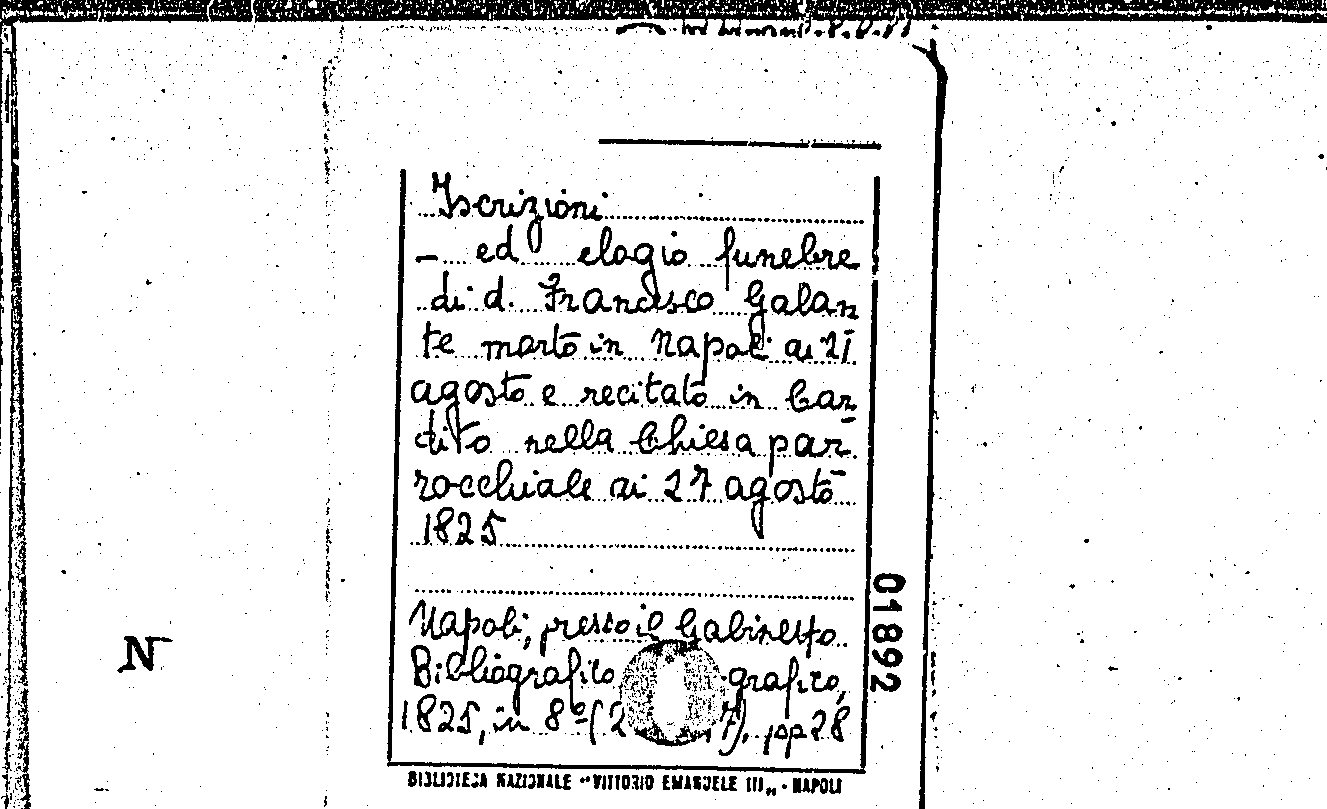 Iscrizioni
– ed elogio funebre
di d. Francesco Galan
te morto in Napoli ai 21
agosto e recitato in Car
dito nella Chiesa par
rocchiale ai 27 agosto
1825
Napoli, presso il Gabinetto
Bibliografico grafico,
1825, in 8º (2 7), pp 28
01892
N
BIBLIOTECA NAZIONALE "VITTORIO EMANUELE III„ - NAPOLI